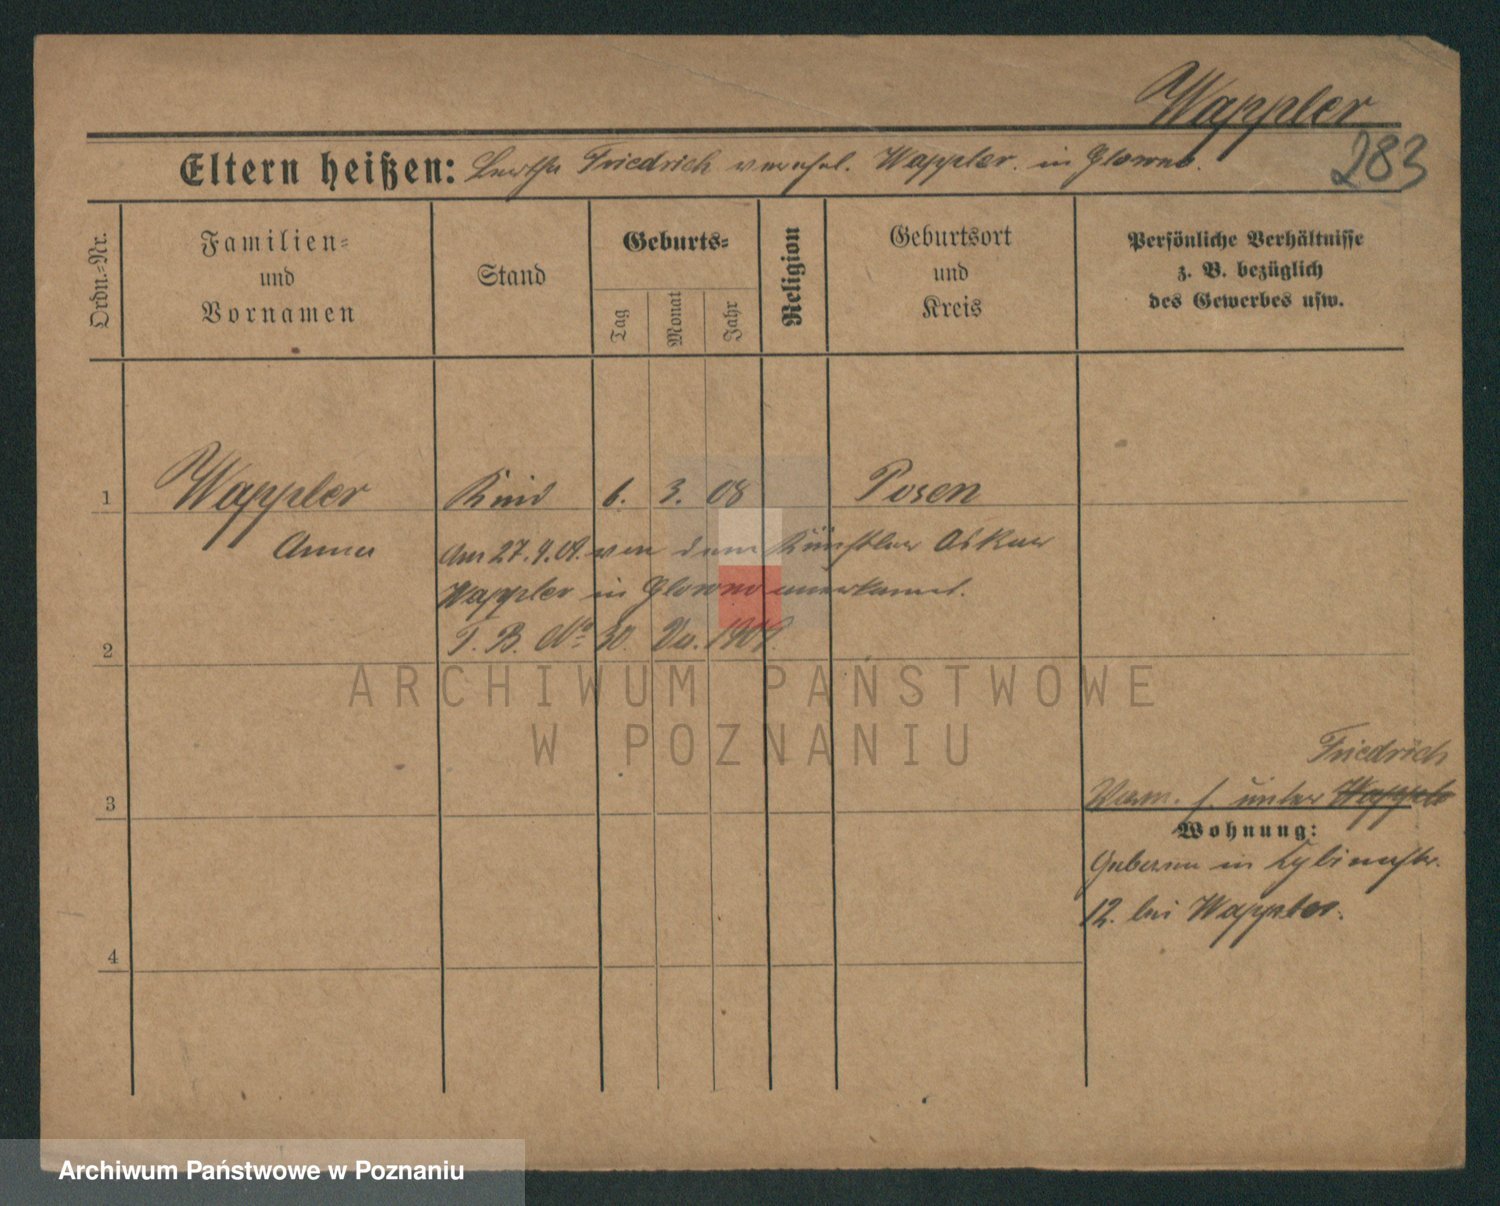 Wappler
Eltern heißen: Bertha Friedrich verehel. Wappler. in Glowno.
283
Ordn.-Nr.
Familien-
und
Vornamen
Stand
Geburts-
Tag
Monat
Jahr
Religion
Geburtsort
und
Kreis
Persönliche Verhältnisse
z. B. bezüglich
des Gewerbes usw.
1
Wappler Kind 6. 3. 08 Posen
Anna
Am 27.9.09. von dem Künstler Oskar
Wappler in Glowno anerkannt.
T. B. No 30. 1909.
2
ARCHIWUM PAŃSTWOWE
W POZNANIU
Friedrich
3
f. unter Wappler
Wohnung:
Geboren in
12. bei Wappler.
4
Archiwum Państwowe w Poznaniu